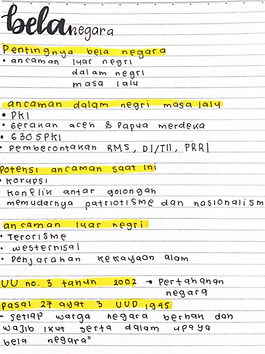 bela negara
Pentingnya bela negara
• ancaman luar negri
dalam negri
masa lalu
ancaman dalam negri masa lalu
• PKI
• Gerakan aceh & Papua merdeka
• G30SPKI
• pemberontakan RMS, DI/TII, PRRI
Potensi ancaman saat ini
• korupsi
konflik antar golongan
memudarnya patriotisme dan nasionalism
ancaman luar negri
• Terorisme
• westernisai
• Penjarahan kekayaan alam
UU no. 3 tahun 2002 → Pertahanan
negara
Pasal 27 ayat 3 UUD 1945
- setiap warga negara berhak dan
wajib ikut serta dalam upaya
bela negara"